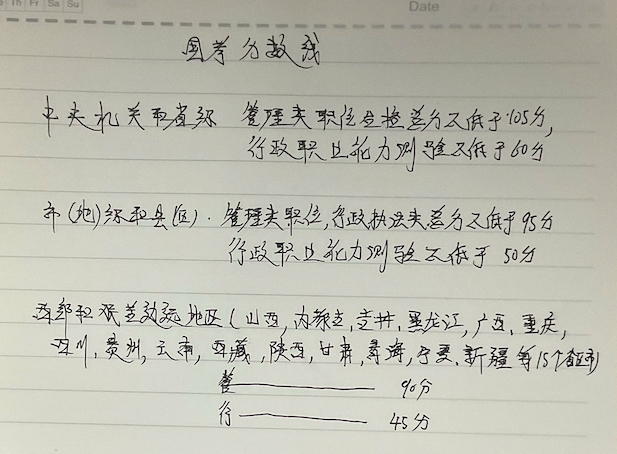 Th Fr Sa Su
Date
国考分数线
中央机关和省级 管理类职位合格总分不低于105分,
行政职业能力测验不低于60分
市(地)级和县(区). 管理类职位,行政执法类总分不低于95分
行政职业能力测验不低于 50分
西部和艰苦边远地区(山西,内蒙古,吉林,黑龙江,广西,重庆,
四川,贵州,云南,西藏,陕西,甘肃,青海,宁夏,新疆等15个省区市)
管 —— 90分
行 —— 45分